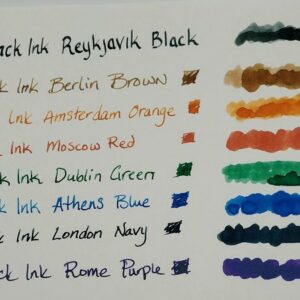 ack Ink Reykjavik Black
k Ink Berlin Brown
Ink Amsterdam Orange
k Ink Moscow Red
k Ink Dublin Green
k Ink Athens Blue
k Ink London Navy
ck Ink Rome Purple